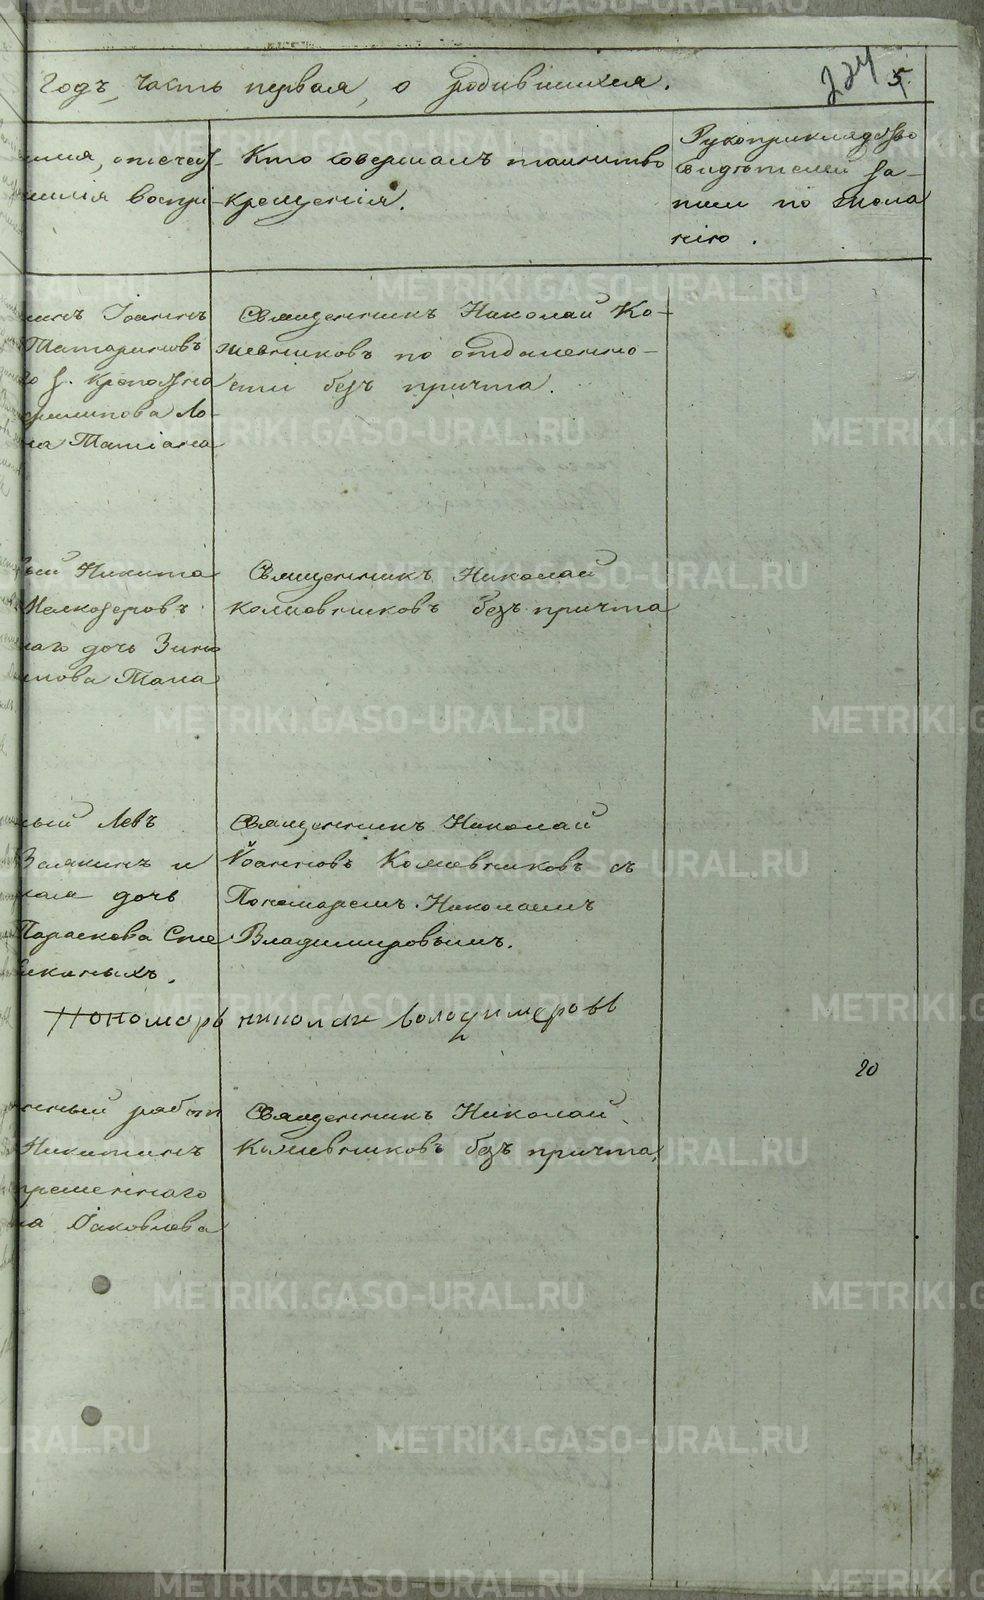 годъ, часть первая, о родившихся.
224
5.
имя, отечест-
милія воспрі-
Кто совершалъ таинство
крещенія.
Рукоприкладство
свидѣтелей за-
писи по жела
нію.
Іоаннъ
Татариновъ
Филипова
Татіана
Священникъ Николай Ко-
жевниковъ по отдаленно-
сти безъ причта.
Никита
дочь
Священникъ Николай
Кожевниковъ безъ причта
Левъ
и
дочь
Параскова Сте
Священникъ Николай
Іоанновъ Кожевниковъ съ
Пономаремъ Николаемъ
Владимировымъ.
Пономарь николаи володимеровъ
20
Никитинъ
Іаковлева
Священникъ Николай
Кожевниковъ безъ причта.
METRIKI.GASO-URAL.RU